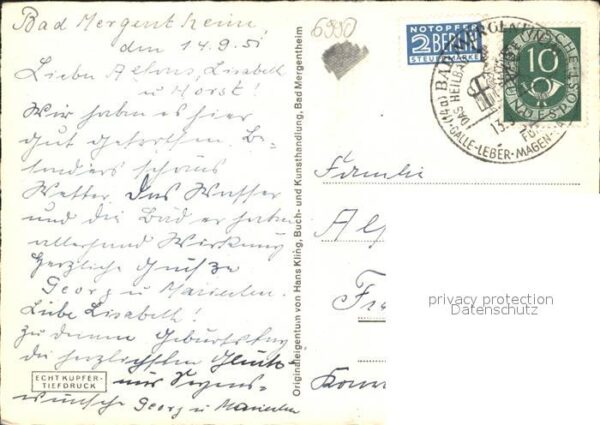 Bad Mergentheim,
den 14.9.51
Liebe Alfons, Lisabeth
u Horst!
Wir haben es hier
gut getroffen. Be-
sonders schönes
Wetter. Das Wasser
und die Bäder haben
allerhand Wirkung
Herzliche Grüße
Georg u
Liebe Lisabeth!
Zu deinem Geburtstag
die herzlichsten Glück-
und Segens-
wünsche Georg u
ECHT KUPFER-
TIEFDRUCK
Originaleigentum von Hans Kling, Buch- und Kunsthandlung, Bad Mergentheim
6990
NOTOPFER
2 BERLIN
STEUERMARKE
(14a) BAD MERGENTHEIM
DAS HEILBAD
FÜR
GALLE-LEBER-MAGEN-
13.
DEUTSCHE
10
BUNDESPOST
Familie
Al
Fr
privacy protection
Datenschutz